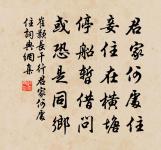 君家何處住
妾住在橫塘
停船暫借問
或恐是同鄉
崔顥長干行君家何處
住詞典網集